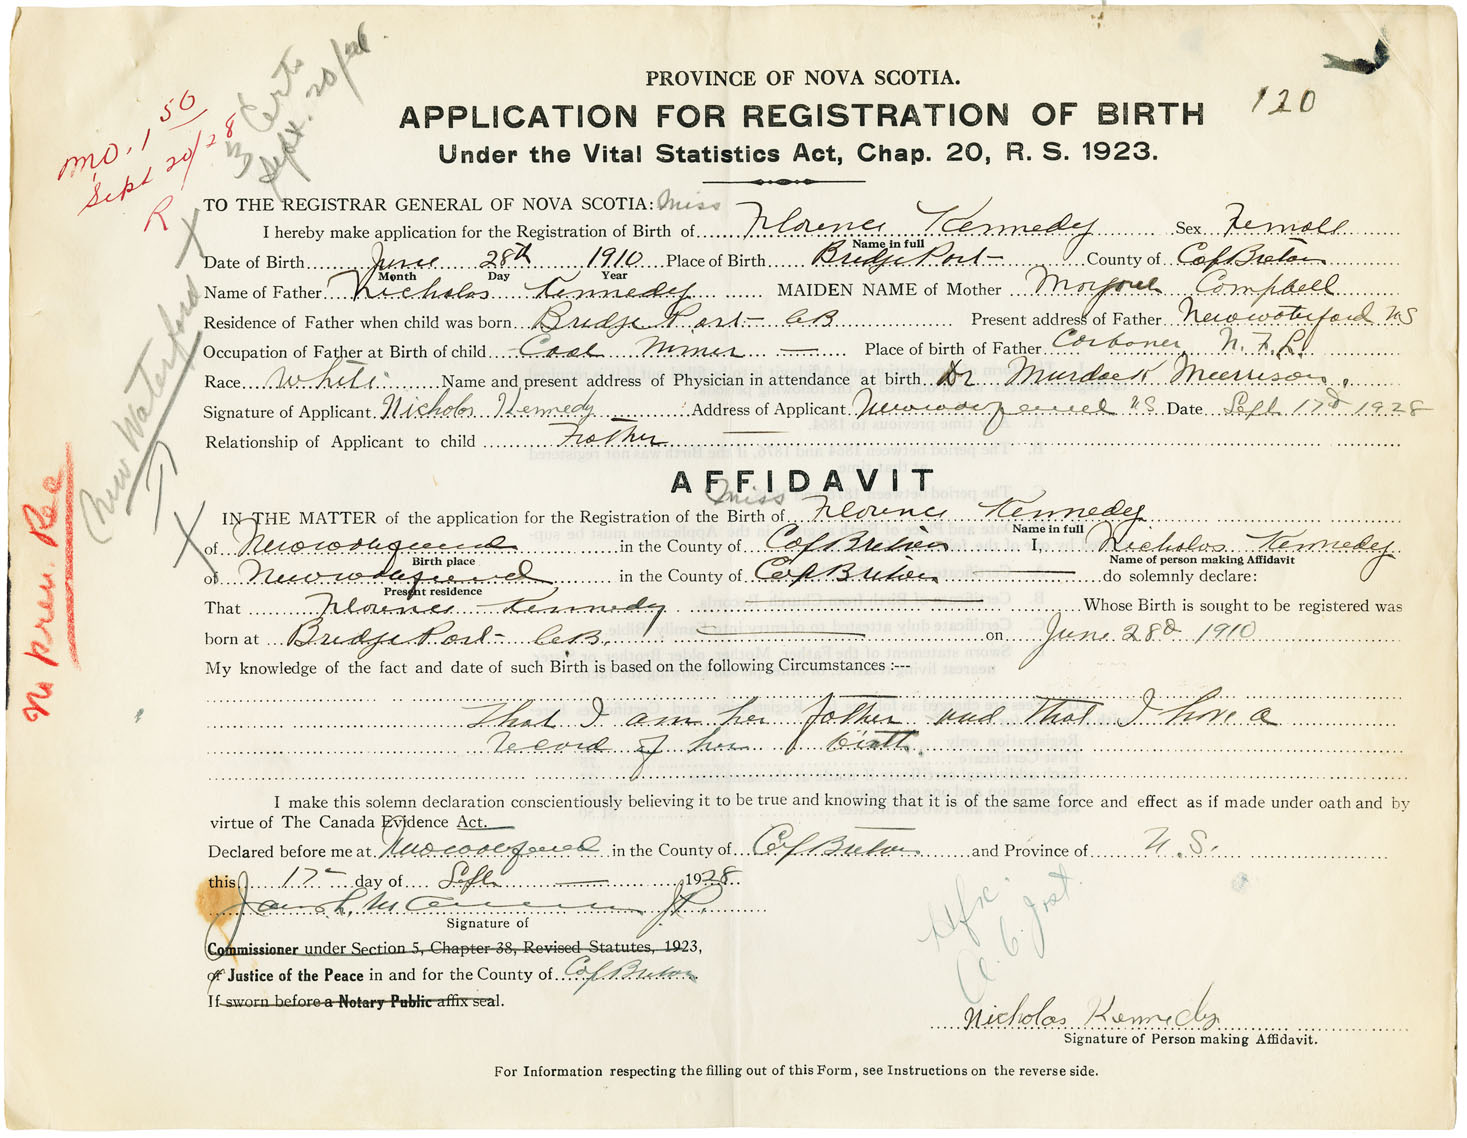 3 Certs
Sept. 20/28
MO. 1 50
Sept 20/28
R
120
PROVINCE OF NOVA SCOTIA.
APPLICATION FOR REGISTRATION OF BIRTH
Under the Vital Statistics Act, Chap. 20, R. S. 1923.
TO THE REGISTRAR GENERAL OF NOVA SCOTIA: Miss
I hereby make application for the Registration of Birth of Florence Kennedy Sex Female
Name in full
Date of Birth June 28th 1910 Place of Birth Bridge Port County of Cap Breton
Month Day Year
Name of Father Nicholas Kennedy MAIDEN NAME of Mother Campbell
Residence of Father when child was born Bridge Port CB Present address of Father Newwaterford NS
Occupation of Father at Birth of child Coal Miner Place of birth of Father Carboner N.F.L.
Race White Name and present address of Physician in attendance at birth Dr Murdock Morrison.
Signature of Applicant Nicholas Kennedy Address of Applicant NS Date Sept 17d 1928
Relationship of Applicant to child Father
New Waterford
X
X
No prev. Rec
AFFIDAVIT
Miss
IN THE MATTER of the application for the Registration of the Birth of Florence Kennedy
Name in full
of in the County of Cap Breton I, Nicholas Kennedy
Birth place Name of person making Affidavit
of in the County of Cap Breton do solemnly declare:
Present residence
That Florence Kennedy Whose Birth is sought to be registered was
born at Bridge Port CB on June 28d 1910
My knowledge of the fact and date of such Birth is based on the following Circumstances :---
that I am her father and that I have a
record of her birth.
I make this solemn declaration conscientiously believing it to be true and knowing that it is of the same force and effect as if made under oath and by
virtue of The Canada Evidence Act.
Declared before me at in the County of Cap Breton and Province of N.S.
this 17 day of Sept 1928
J.P.
Signature of
Commissioner under Section 5, Chapter 38, Revised Statutes, 1923,
or Justice of the Peace in and for the County of Cap Breton
If sworn before a Notary Public affix seal.
Nicholas Kennedy
Signature of Person making Affidavit.
For Information respecting the filling out of this Form, see Instructions on the reverse side.